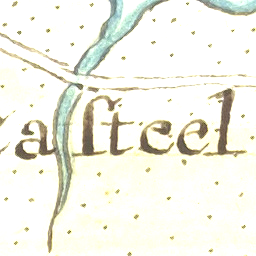 aſteel